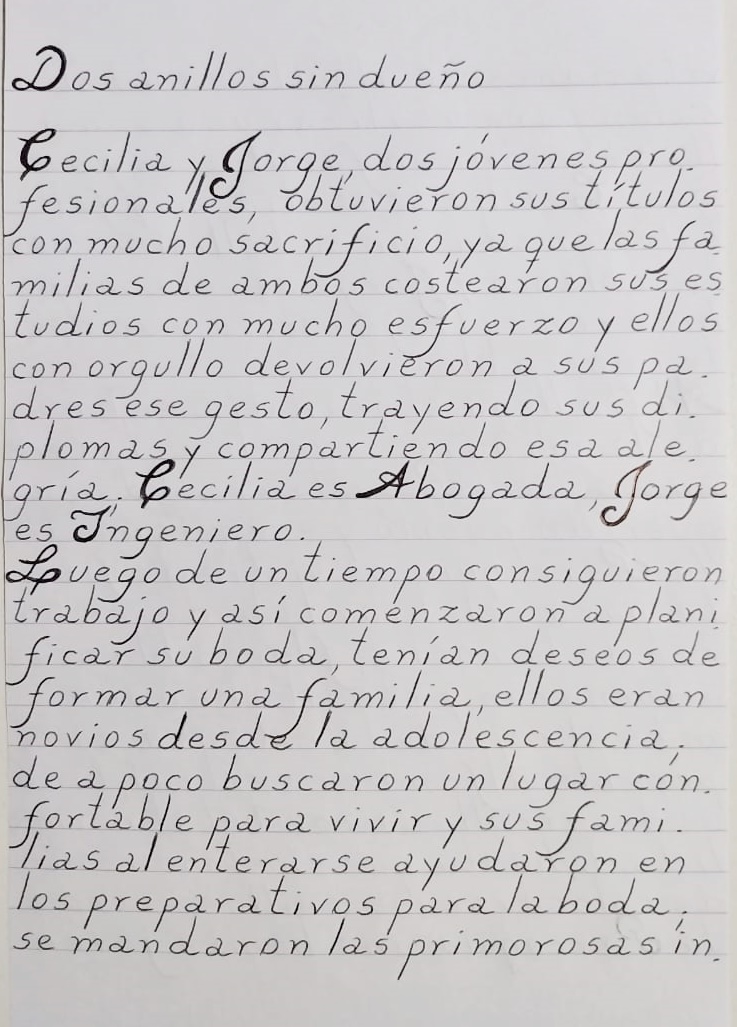 Dos anillos sin dueño
Cecilia y Jorge, dos jóvenes pro.
fesionales, obtuvieron sus títulos
con mucho sacrificio, ya que las fa.
milias de ambos costearon sus es
tudios con mucho esfuerzo y ellos
con orgullo devolvieron a sus pa.
dres ese gesto, trayendo sus di.
plomas y compartiendo esa ale.
gría. Cecilia es Abogada, Jorge
es Ingeniero.
Luego de un tiempo consiguieron
trabajo y así comenzaron a plani
ficar su boda, tenían deseos de
formar una familia, ellos eran
novios desde la adolescencia;
de a poco buscaron un lugar con.
fortable para vivir y sus fami.
lias al enterarse ayudaron en
los preparativos para la boda;
se mandaron las primorosas in.